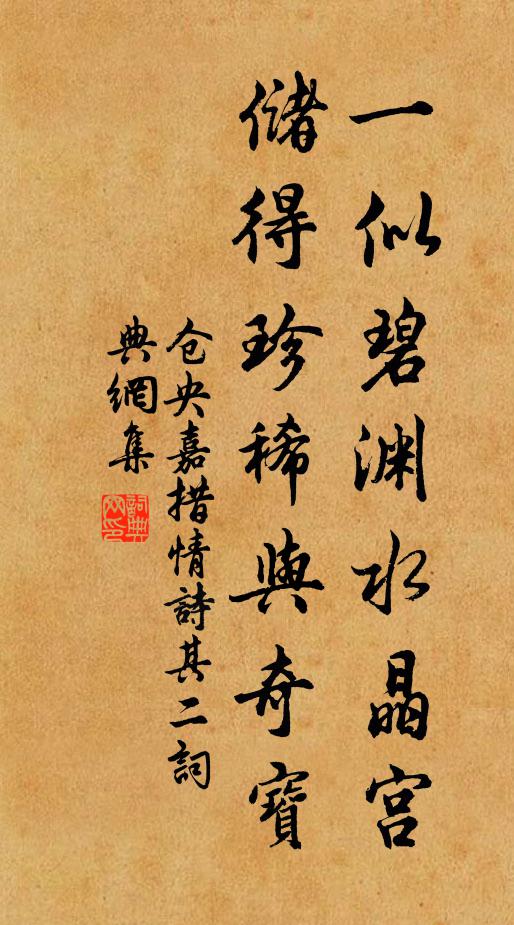 一似碧渊水晶宫
儲得珍稀與奇寶
仓央嘉措情詩其二詞
典網集
詞典
网印